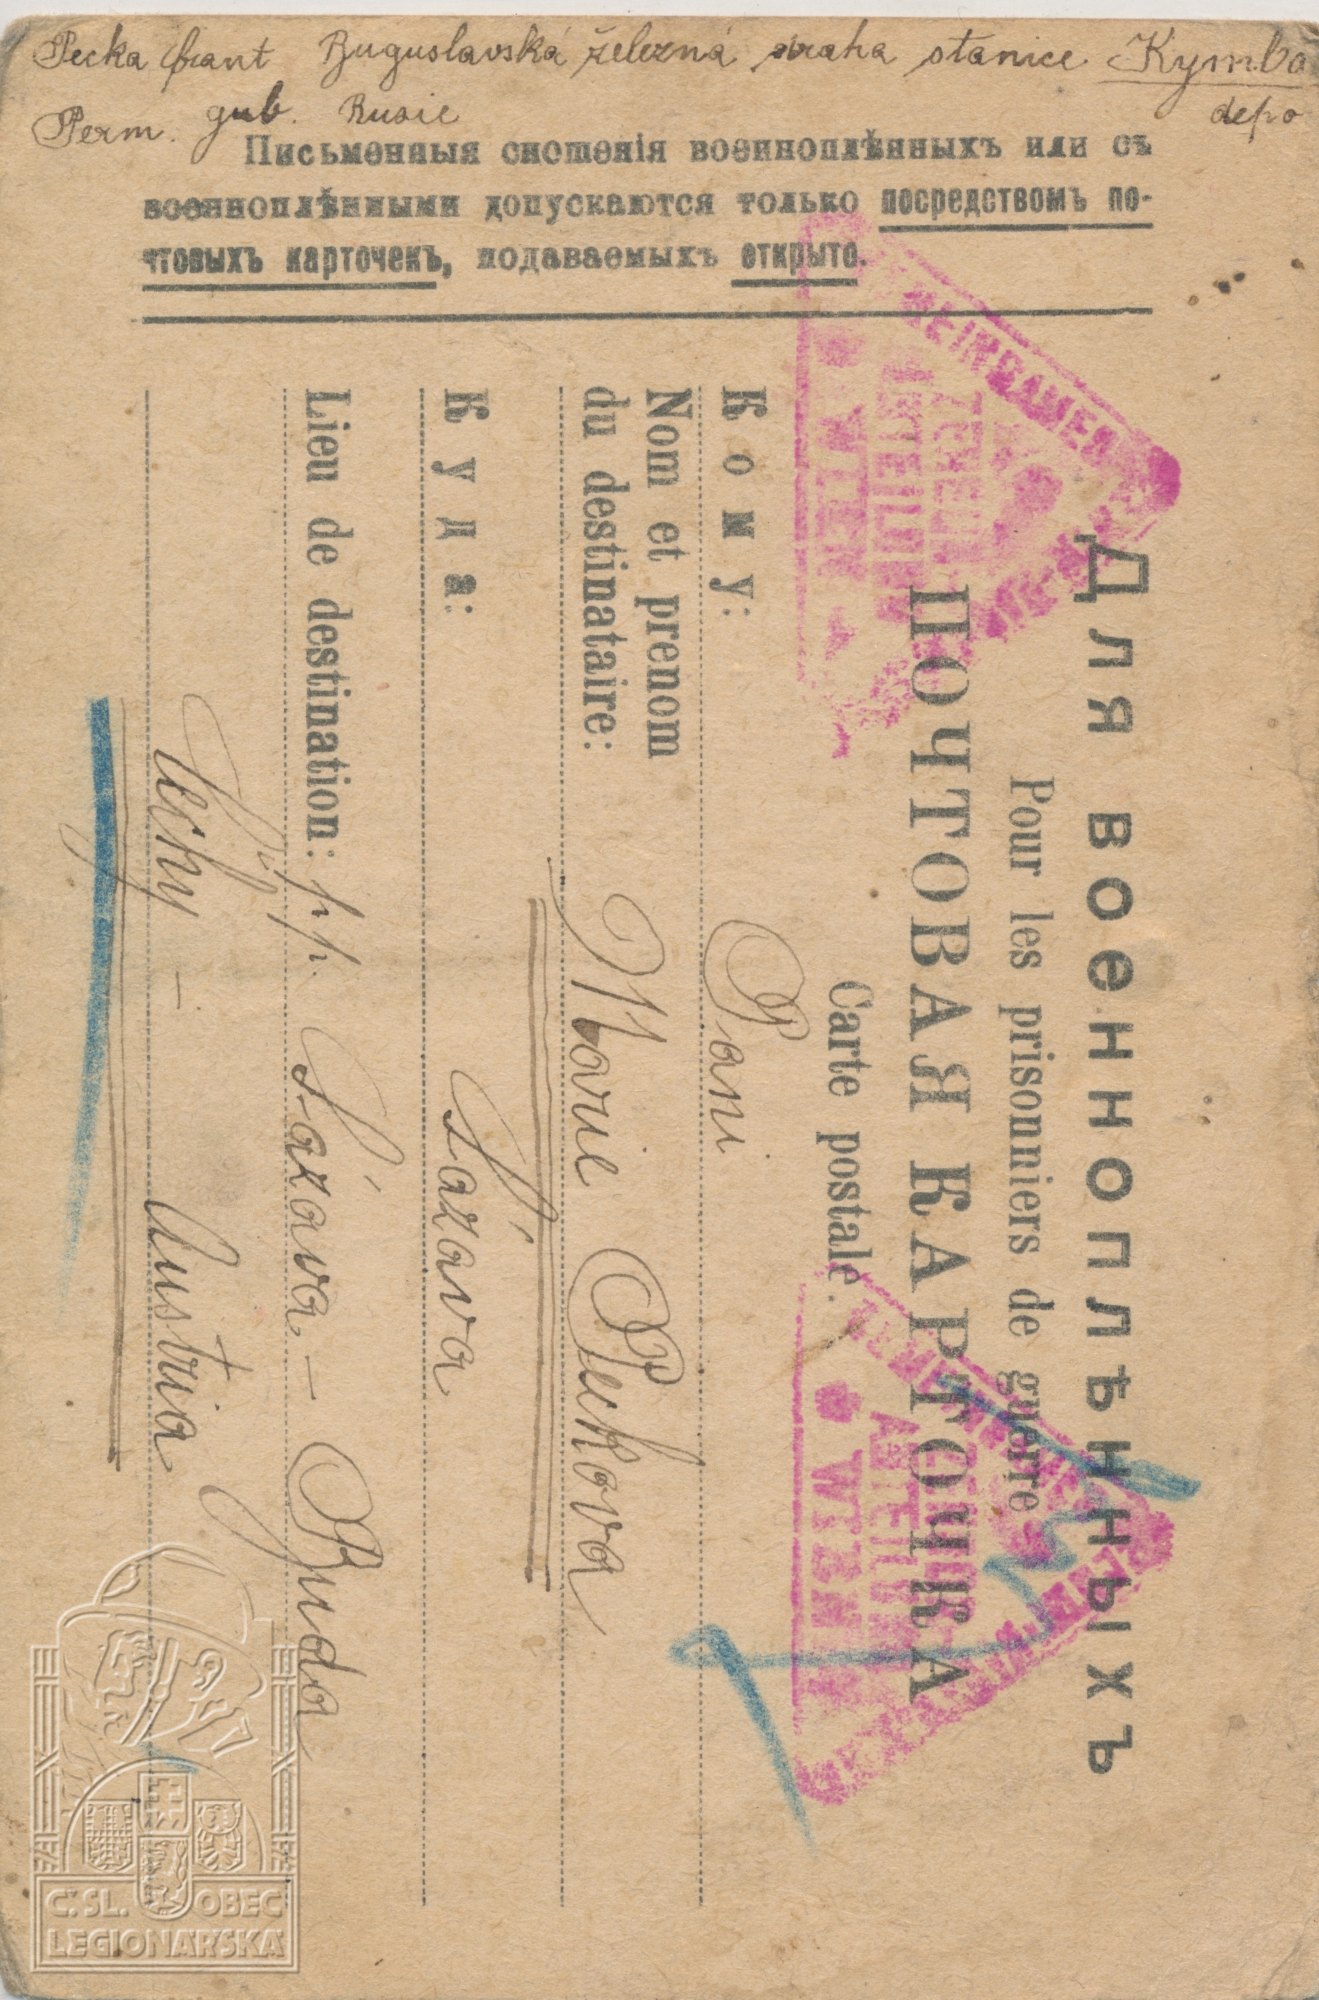 Pecka frant Buguslavská železná draha stanice Kymba
Perm. gub. Rusie depo
Письменныя сношенія военноплѣнныхъ или съ
военноплѣнными допускаются только посредствомъ по-
чтовыхъ карточекъ, подаваемыхъ открыто.
Для военноплѣнныхъ
Pour les prisonniers de guerre
ПОЧТОВАЯ КАРТОЧКА
Carte postale.
Кому:
Pani
Nom et prenom
du destinataire:
Marie Peckova
Куда:
Sázava
Lieu de destination: pp. Sázava - Buda
Čechy - Austria
ZENSUR
ABTEILUNG
WIEN
ABTEILUNG
WIEN
Č.SL. OBEC
LEGIONÁŘSKÁ